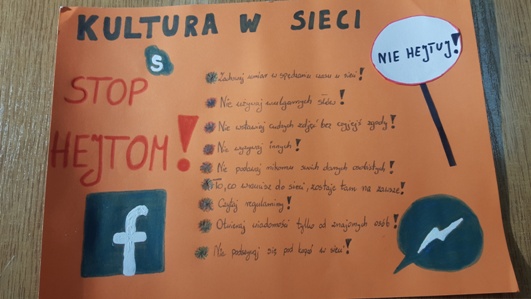 KULTURA W SIECI
S
NIE HEJTUJ!
STOP
HEJTOM!
Zachowaj umiar w spędzaniu czasu w sieci!
Nie używaj wulgarnych słów!
Nie wstawiaj cudzych zdjęć bez czyjejś zgody!
Nie wyzywaj innych!
Nie podawaj nikomu swoich danych osobistych!
To, co wrzucisz do sieci, zostaje tam na zawsze!
Czytaj regulaminy!
Otwieraj wiadomości tylko od znajomych osób!
Nie podszywaj się pod kogoś w sieci!
f